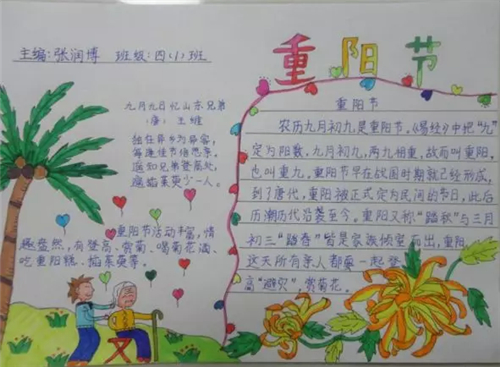 主编:张润博 班级:四(1)班
重阳节
九月九日忆山东兄弟
(唐)王维
独在异乡为异客,
每逢佳节倍思亲。
遥知兄弟登高处,
遍插茱萸少一人。
重阳节活动丰富,情
趣盎然,有登高、赏菊、喝菊花酒、
吃重阳糕、插茱萸等。
重阳节
农历九月初九是重阳节,《易经》中把"九"
定为阳数,九月初九,两九相重,故而叫重阳,
也叫重九,重阳节早在战国时期就已经形成,
到了唐代,重阳被正式定为民间的节日,此后
历朝历代沿袭至今。重阳又称"踏秋"与三月
初三"踏春"皆是家族倾室而出,重阳
这天所有亲人都要一起登
高"避灾"赏菊花。